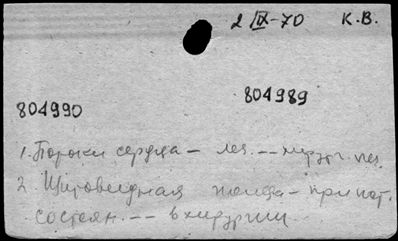 2 IX-70 К.В.
804990 804989
1. Пороки сердца - леч. --- хирург. леч.
2. Щитовидная железа - при пат.
состоян. --- в хирургии